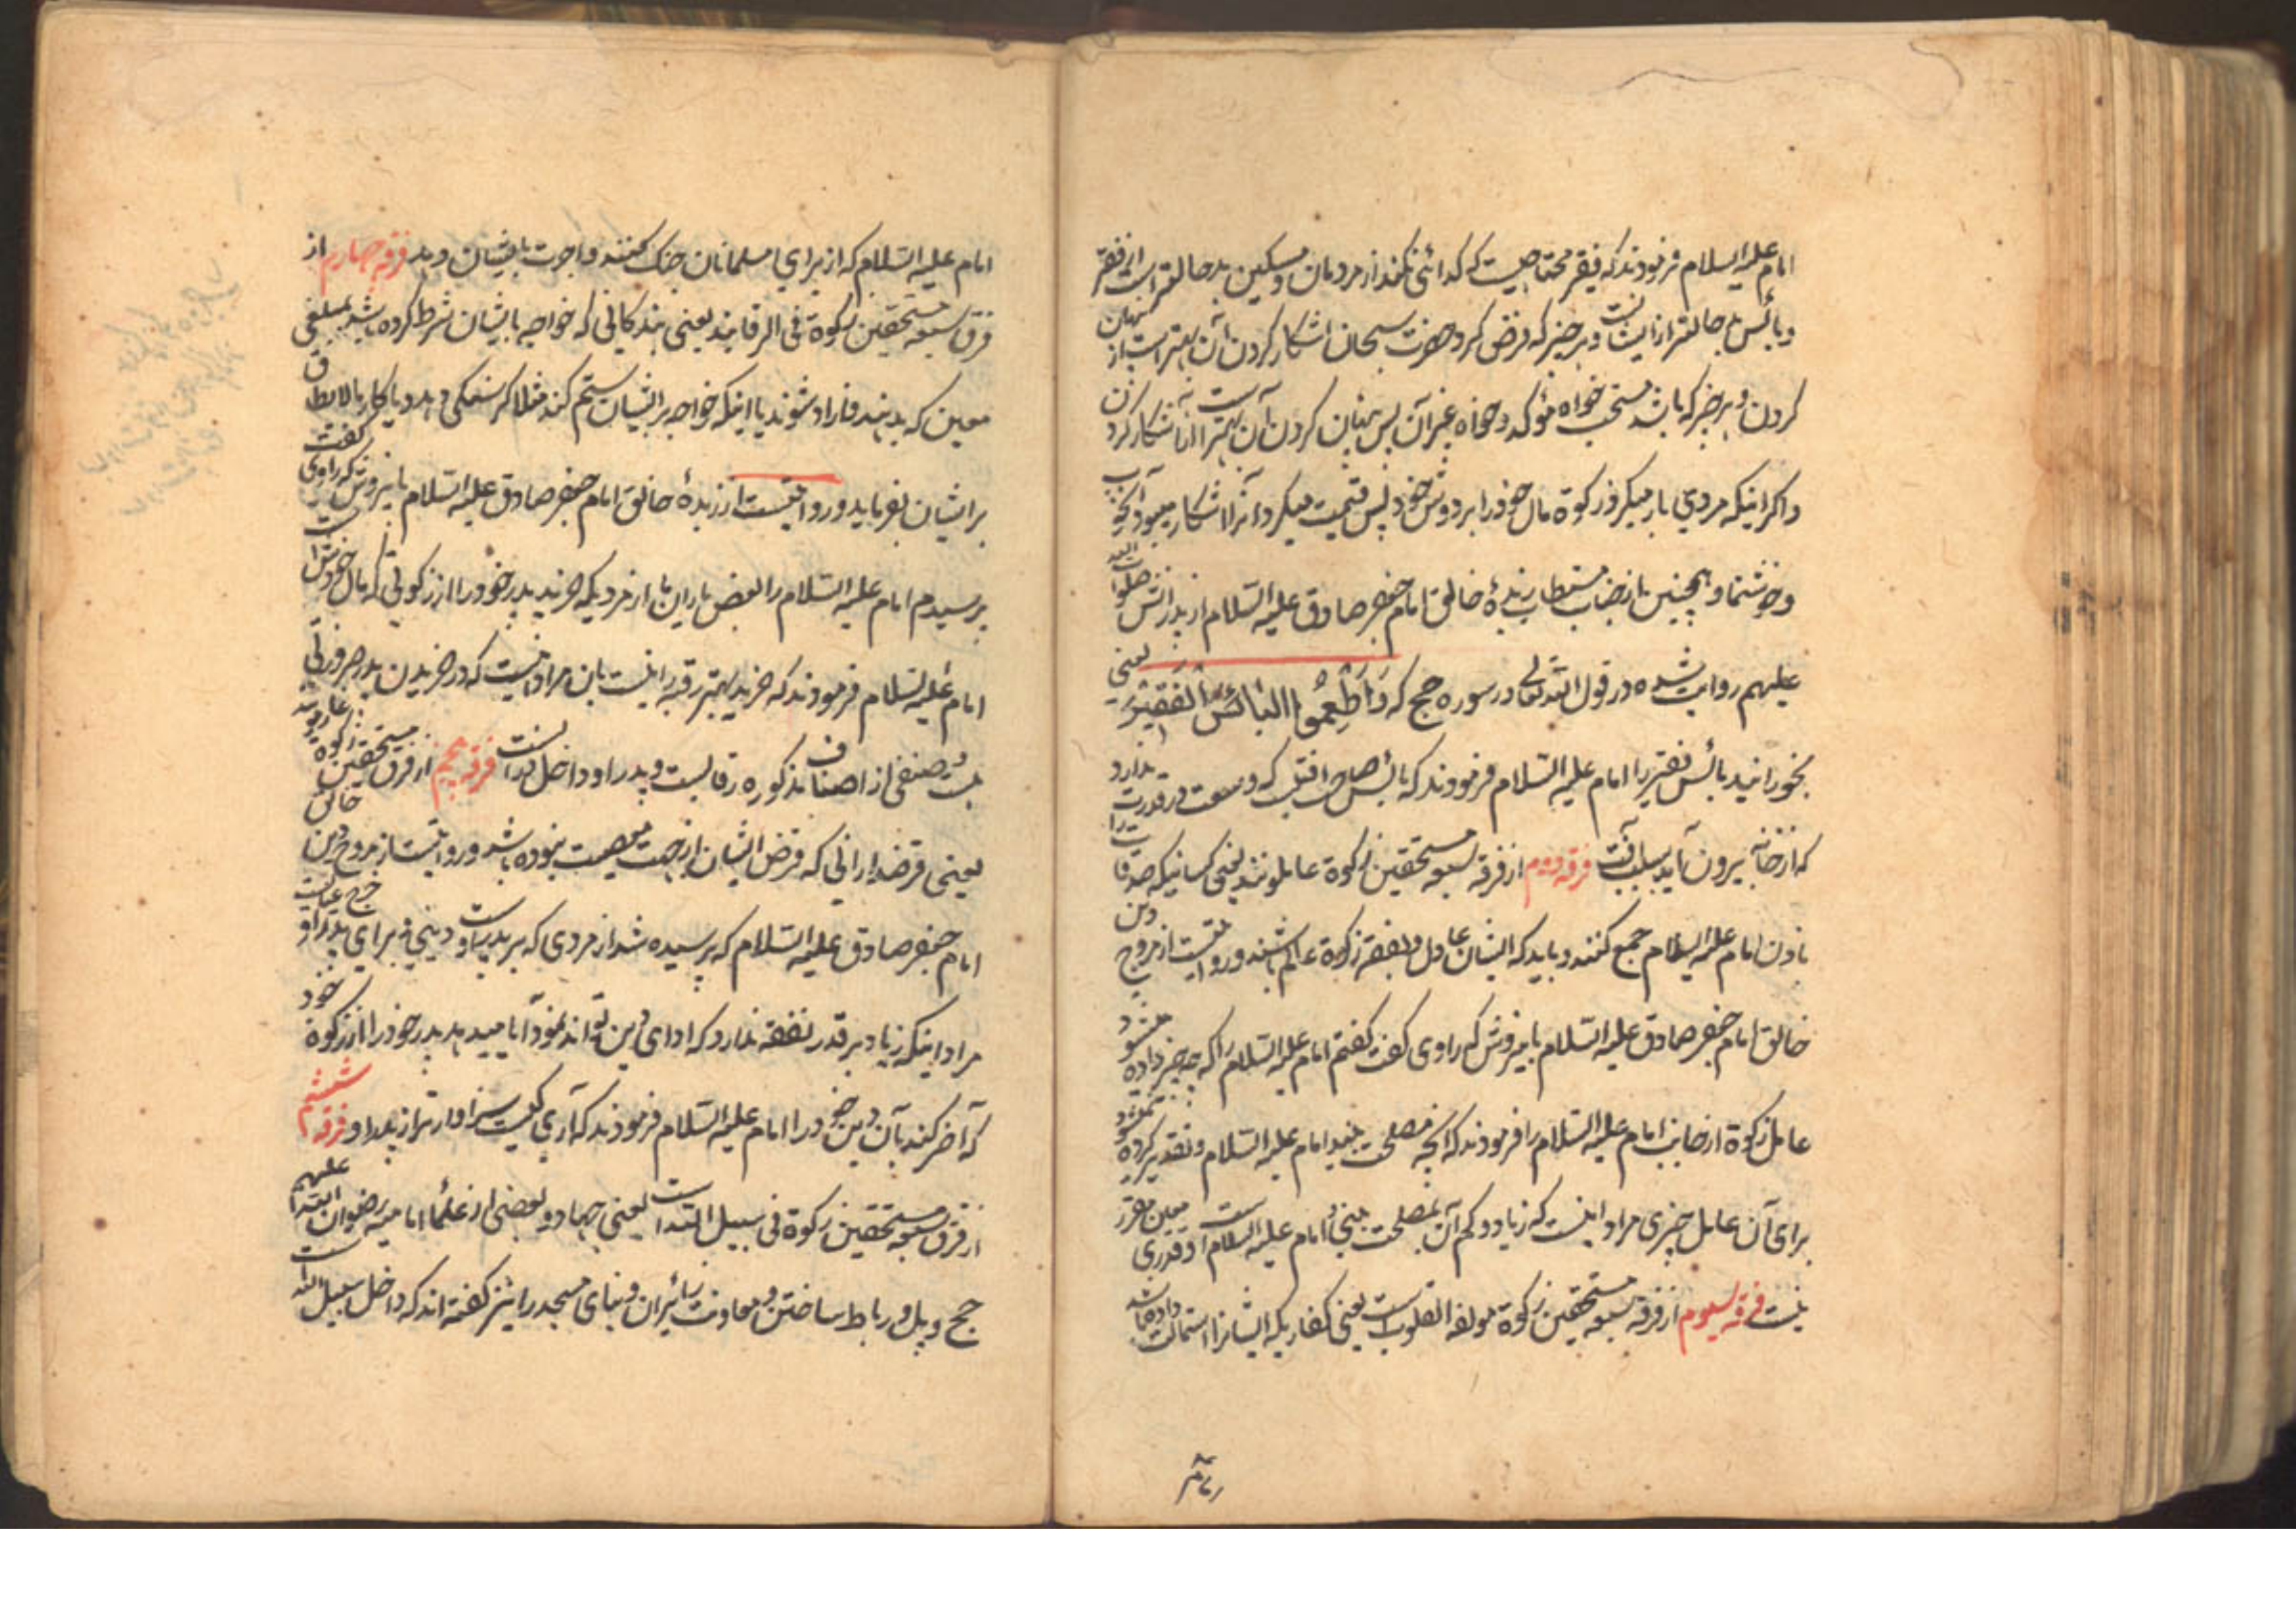 امام علیه السلام فرمودند که فقیر محتاجیست که گدائی نکند از مردمان و مسکین بدحالتر است از فقیر
و بائس بدحالتر از اینست و هر چیز که فرض کرد حضرت سبحان اشکار کردن آن بهتر است از پنهان
کردن و هر چیز که باشد مستحب خواه مؤکد و خواه غیر آن پس پنهان کردن آن بهتر است از آشکار کردن
و اگر اینکه مردی بار میکرد زکوة مال خود را بر دوش خود پس قسمت میکرد آنرا اشکار میبود آن خوب
و خوشنما و همچنین باز جناب مستطاب زبدهٔ خالق امام جعفر صادق علیه السلام از پدرانش صلوات الله
علیهم روایت شده در قول الله تعالی در سوره حج که وَاَطْعِمُوا الْبَائِسَ الْفَقِیْرَ یعنی
بخورانید بائس فقیر را امام علیه السلام فرمودند که بائس صاحب که وسعت و قدرت ندارد
که از خانه بیرون آید بسبب آفت فرقه دویم از فرقه سبعه مستحقین زکوة عاملونند یعنی کسانیکه صدقات را
باذن امام علیه السلام جمع کنند و باید که ایشان عادل و بفقه زکوة عالم باشند و روایتست از مروج دین
خالق امام جعفر صادق علیه السلام بامیفروش که راوی گفت گفتم امام علیه السلام را که چه چیز داده میشود
عامل زکوة از جانب امام علیه السلام را فرمودند که آنچه مصلحت بیند امام علیه السلام و تقدیر کرده نمیشود
برای آن عامل چیزی مراد اینست که زیاد و کم آن بمصلحت بینی امام علیه السلام است و قدری معین مقرر
نیست فرقه سیوم از فرقه سبعه مستحقین زکوة مولفة القلوبست یعنی کفاریکه ایشانرا استمالت داده باشد
امام علیه السلام که از برای مسلمانان جنک کنند و اجرت بایشان دهد فرقه چهارم از
فرق سبعه مستحقین زکوة فی الرقابند یعنی بندکانی که خواجه بایشان شرط کرده باشد بمبلغی
معین که بدهند و ازاد شوند یا اینکه خواجه بر ایشان ستم کند مثلا کرسنکی دهد و یا کار بالایطاق
بر ایشان بفرماید و روایتست از زبدهٔ خالق امام جعفر صادق علیه السلام بامیفروش که راوی گفت
پرسیدم امام علیه السلام را بعض یاران ما از مردیکه خرید پدر خود را از زکوتی که مال خودش است
امام علیه السلام فرمودند که خرید بهتر رقبه را اینست بآن مراد اینست که در خریدن پدر ضرورتی
صنفی از اصناف مذکوره رقابست و پدر او داخل در آنست فرقه پنجم از فرق مستحقین زکوة
یعنی قرضدارانی که قرض ایشان از جهت معصیت نبوده باشد و روایتست از مروج دین خالق
امام جعفر صادق علیه السلام که پرسیده شد از مردی که بر پدر اوست دینی و برای پدر او خرج عیالست
مراد اینکه زیاد بر قدر نفقه ندارد که ادای دین تواند نمود آیا میدهد پدر خود را از زکوة خود
که آخر کند بآن دین خود را امام علیه السلام فرمودند که آری کیست سزاوارتر از پدر او و فرقه ششم
از فرق سبعه مستحقین زکوة فی سبیل الله است یعنی جهاد و بعضی از علماء امامیه رضوان الله علیهم
حج و پل و رباط ساختن و معاونت زائران و بنای مسجد را نیز کفته اند که داخل سبیل الله است